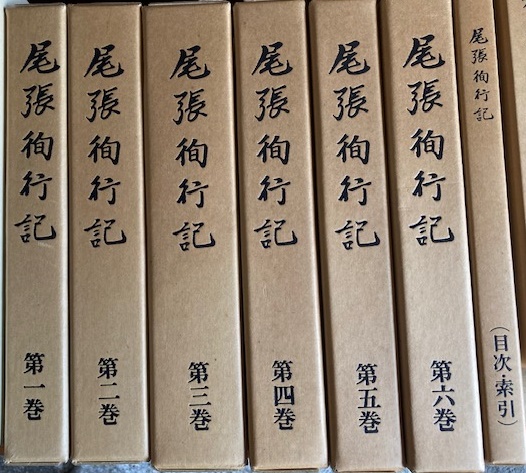 尾張徇行記
第一巻
尾張徇行記
第二巻
尾張徇行記
第三巻
尾張徇行記
第四巻
尾張徇行記
第五巻
尾張徇行記
第六巻
尾張徇行記
（目次・索引）